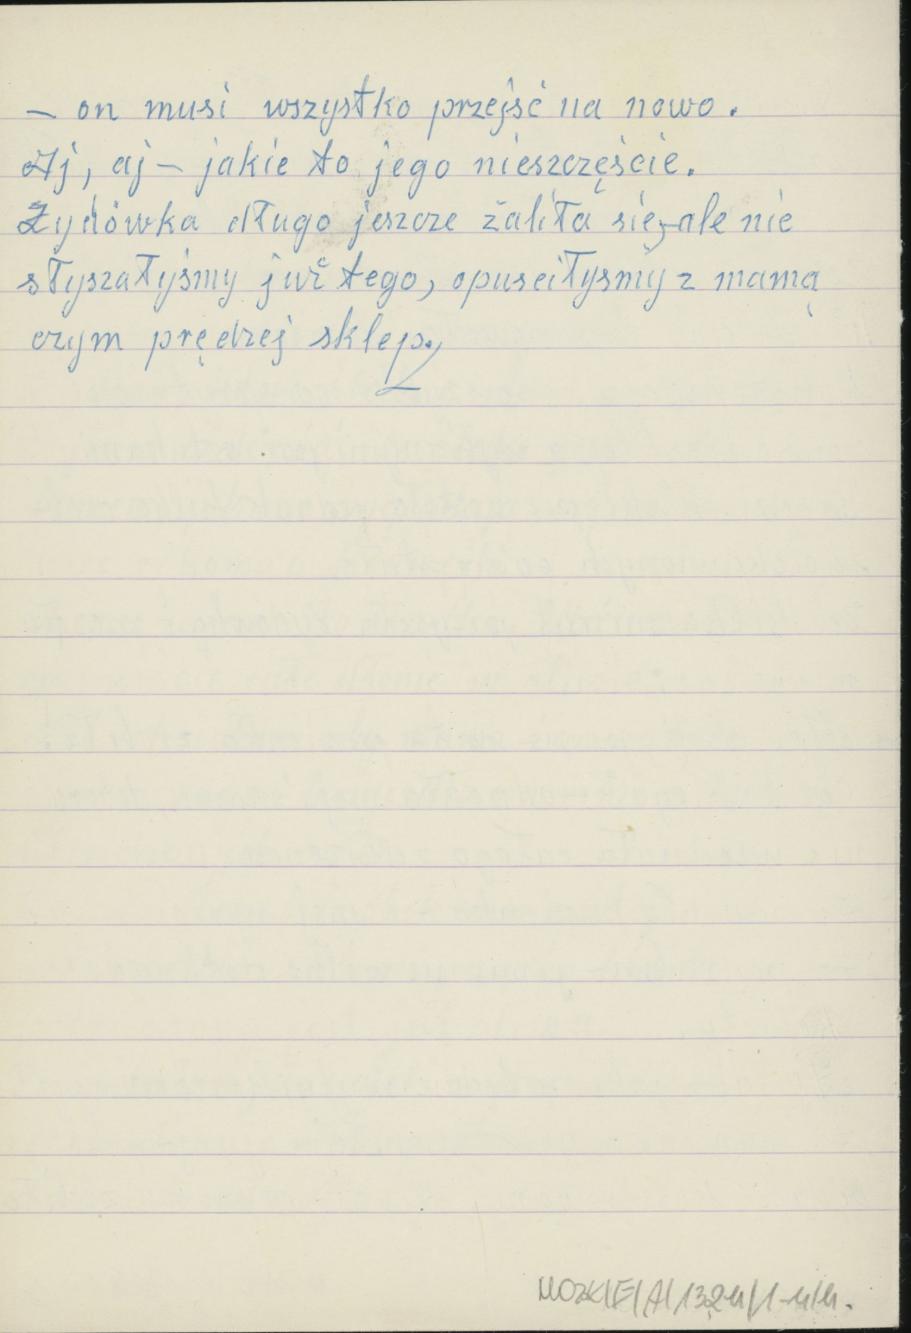 – on musi wszystko przejść na nowo.
Aj, aj – jakie to jego nieszczęście.
Żydówka długo jeszcze żaliła się, ale nie
słyszałyśmy już tego, opuściłyśmy z mamą
czym prędzej sklep.